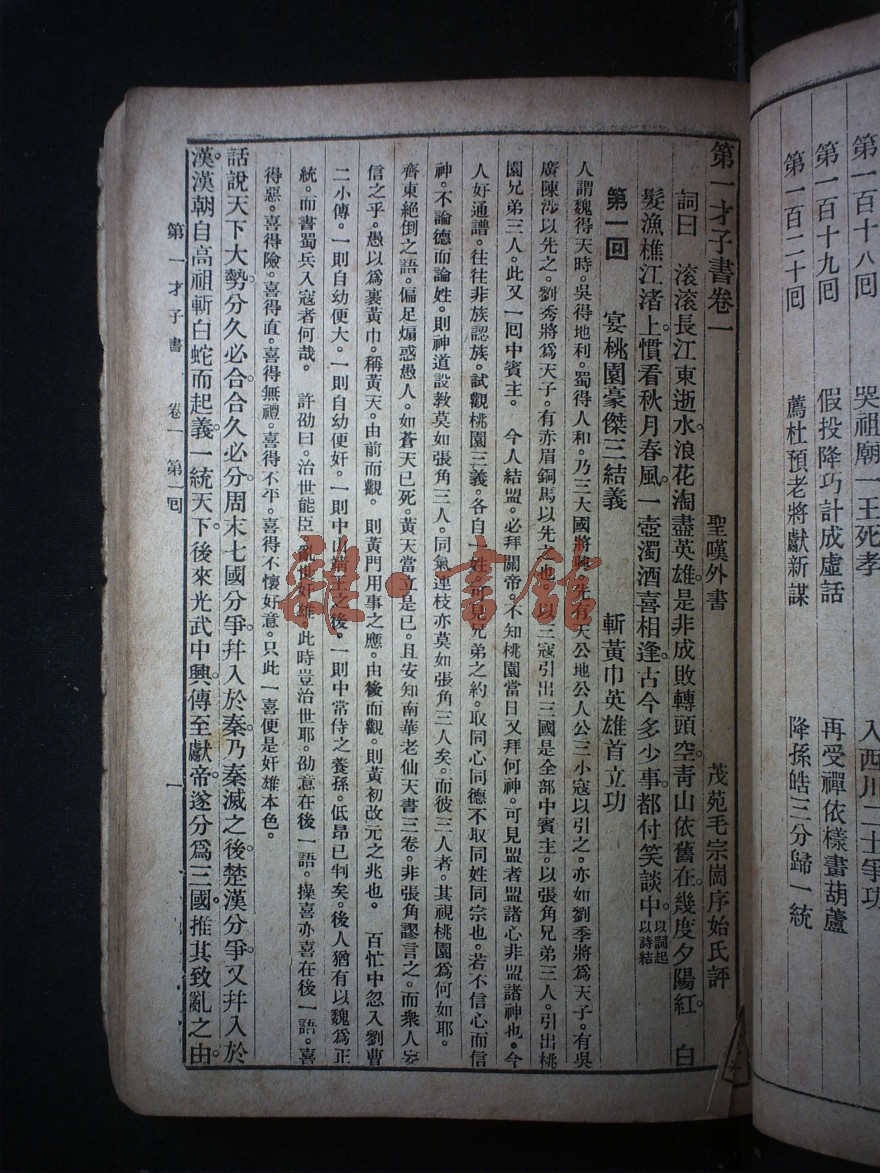 第一百十八回　哭祖廟一王死孝　入西川二士爭功
第一百十九回　假投降巧計成虛話　再受禪依樣畫葫蘆
第一百二十回　薦杜預老將獻新謀　降孫皓三分歸一統
第一才子書卷一
聖嘆外書　茂苑毛宗崗序始氏評
詞曰　滾滾長江東逝水。浪花淘盡英雄。是非成敗轉頭空。青山依舊在。幾度夕陽紅。　白
髮漁樵江渚上。慣看秋月春風。一壺濁酒喜相逢。古今多少事。都付笑談中。以詞起以詩結
第一回　宴桃園豪傑三結義　斬黃巾英雄首立功
人謂魏得天時。吳得地利。蜀得人和。乃三大國將興。先有天公地公人公三小寇以引之。亦如劉季將爲天子。有吳
廣陳涉以先之。劉秀將爲天子。有赤眉銅馬以先之也。以三寇引出三國是全部中賓主。以張角兄弟三人。引出桃
園兄弟三人。此又一回中賓主。　今人結盟。必拜關帝。不知桃園當日又拜何神。可見盟者盟諸心非盟諸神也。今
人好通譜。往往非族認族。試觀桃園三義。各自一姓。可見兄弟之約。取同心同德不取同姓同宗也。若不信心而信
神。不論德而論姓。則神道設教莫如張角三人。同氣連枝亦莫如張角三人矣。而彼三人者。其視桃園爲何如耶。
齊東絕倒之語。偏足煽惑愚人。如蒼天已死。黃天當立是已。且安知南華老仙天書三卷。非張角謬言之。而衆人妄
信之乎。愚以爲裹黃巾。稱黃天。由前而觀。則黃門用事之應。由後而觀。則黃初改元之兆也。　百忙中忽入劉曹
二小傳。一則自幼便大。一則自幼便奸。一則中山靖王之後。一則中常侍之養孫。低昂已判矣。後人猶有以魏爲正
統。而書蜀兵入寇者何哉。　許劭曰。治世能臣。亂世奸雄。此時豈治世耶。劭意在後一語。操喜亦喜在後一語。喜
得惡。喜得險。喜得直。喜得無禮。喜得不平。喜得不懷好意。只此一喜便是奸雄本色。
話說天下大勢。分久必合。合久必分。周末七國分爭。幷入於秦。乃秦滅之後。楚漢分爭。又幷入於
漢。漢朝自高祖斬白蛇而起義。一統天下。後來光武中興。傳至獻帝。遂分爲三國。推其致亂之由。
第一才子書　卷一　第一回　一
雜·書館